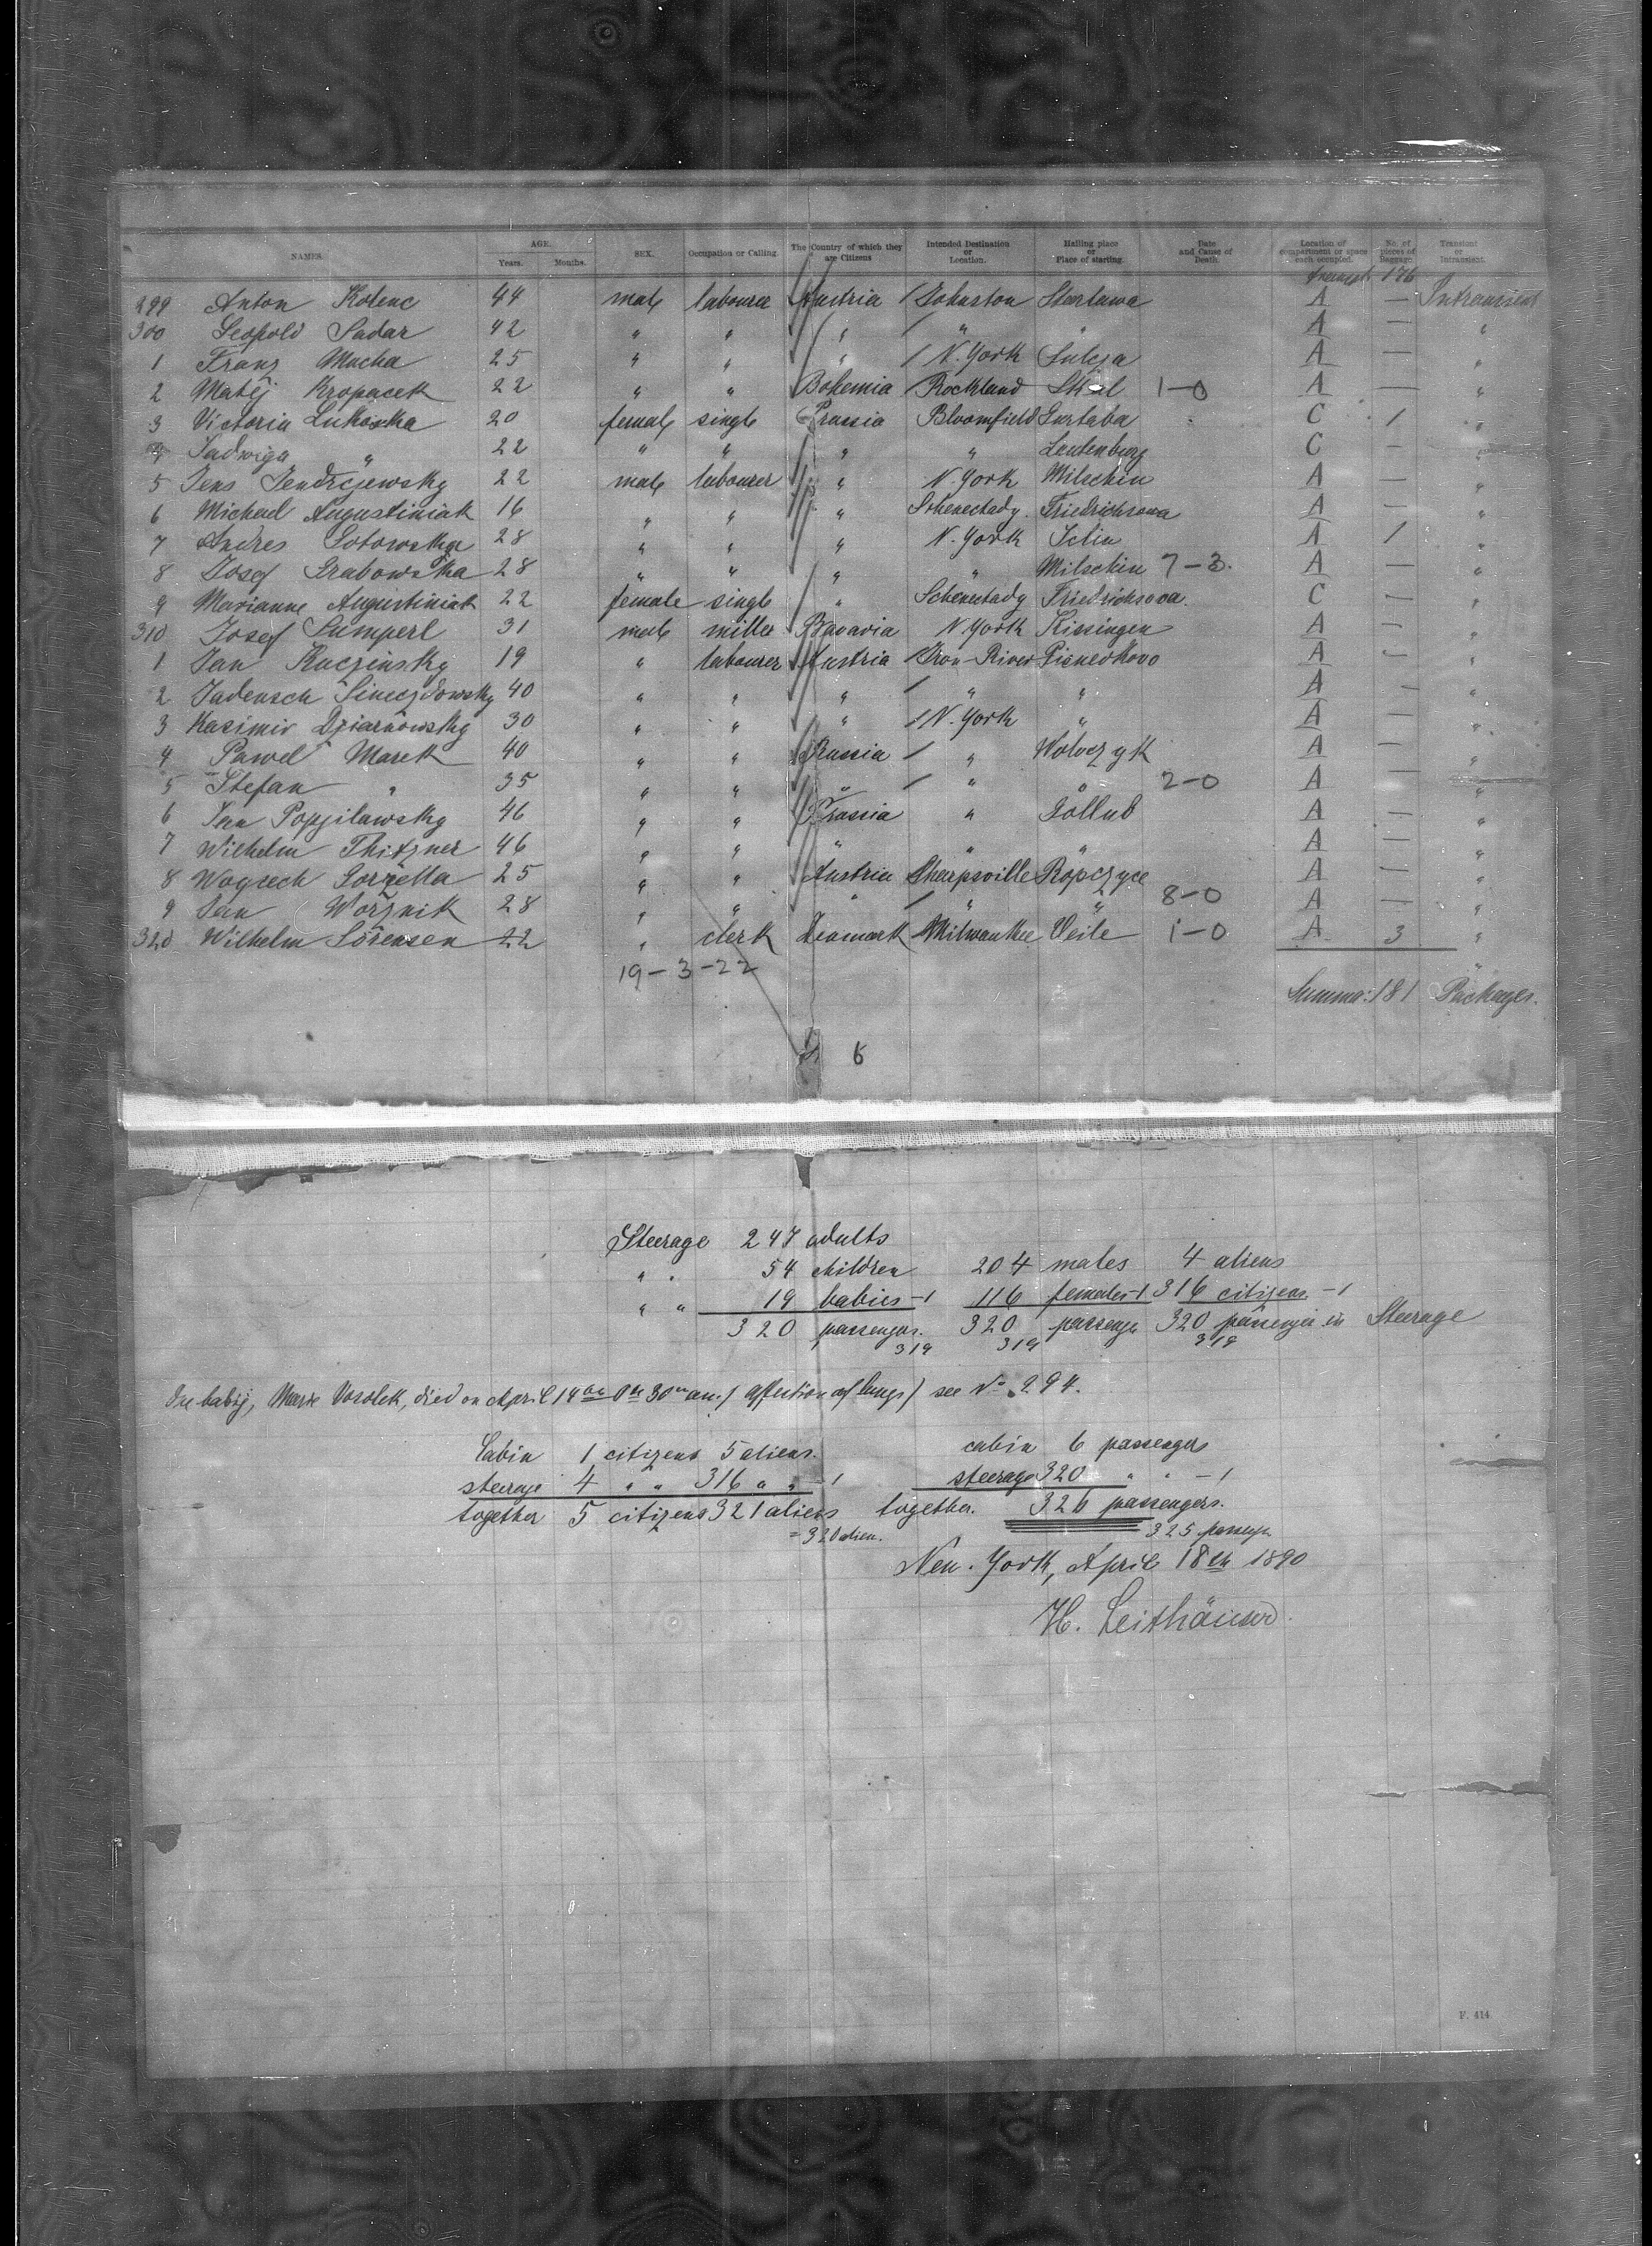 NAMES. AGE. Years. Months. SEX. Occupation or Calling. The Country of which they are Citizens Intended Destination or Location. Hailing place or Place of starting. Date and Cause of Death. Location of compartment or space each occupied. No. of pieces of Baggage. Transient or Intransient.
176
299 Anton Kolenc 44 male labourer Austria Johnston A — Intransient
300 Leopold Sadar 42 " " " " " A — "
1 Franz Mucha 25 " " " N. York Sulcza A — "
2 Matěj Kropacek 22 " " Bohemia Rockland 1-0 A — "
3 Victoria Lukoska 20 female single Prussia Bloomfield Gurtaba C 1 "
4 Jadwiga " 22 " " " " Lautenburg C — "
5 Jens Jendrcjewsky 22 male labourer " N. York Milschin A — "
6 Michael Augustiniak 16 " " " Schenectady. Friedrichsowa A — "
7 Andres Gotowska 28 " " " N. York A 1 "
8 Josef Grabowska 28 " " " " Milschin 7-3. A — "
9 Marianne Augustiniak 22 female single " Schenectady Friedrichsowa. C — "
310 Josef Gumperl 31 male miller Bavaria N. York Kissingen A — "
1 Jan Raczinsky 19 " labourer Austria Iron-River A — "
2 40 " " " " " A — "
3 Kasimir Dziarnowsky 30 " " " N. York " A — "
4 Pawel Marek 40 " " Russia " Woloczyk A — "
5 Stefan " 35 " " " " " 2-0 A — "
6 Jan Popjilawsky 46 " " Prussia " Gollub A — "
7 Wilhelm Thitzner 46 " " " " " A — "
8 Woycech Gorzella 25 " " Austria Sharpsville Ropczyce A — "
9 Jan Worznik 28 " " " " " 8-0 A — "
320 Wilhelm Sörensen 22 " clerk Denmark Milwaukee Veile 1-0 A 3 "
19-3-22
Summa: 181 Packages.
6
Steerage 247 adults
" " 54 children 204 males 4 aliens
" " 19 babies -1 116 females -1 316 citizens -1
320 passengers. 320 passenge 320 passenger in Steerage
319 319 319
baby, Marie Vosolek, died on April 14th 0h 30m am. (affection of lungs) see No 294.
Cabin 1 citizens 5 aliens. cabin 6 passengers
steerage 4 " " 316 " " -1 steerage 320 " " -1
together 5 citizens 321 aliens together. 326 passengers.
= 320 alien. 325 passeng.
New-York, April 18th 1890
H. Leithäuser.
F. 414